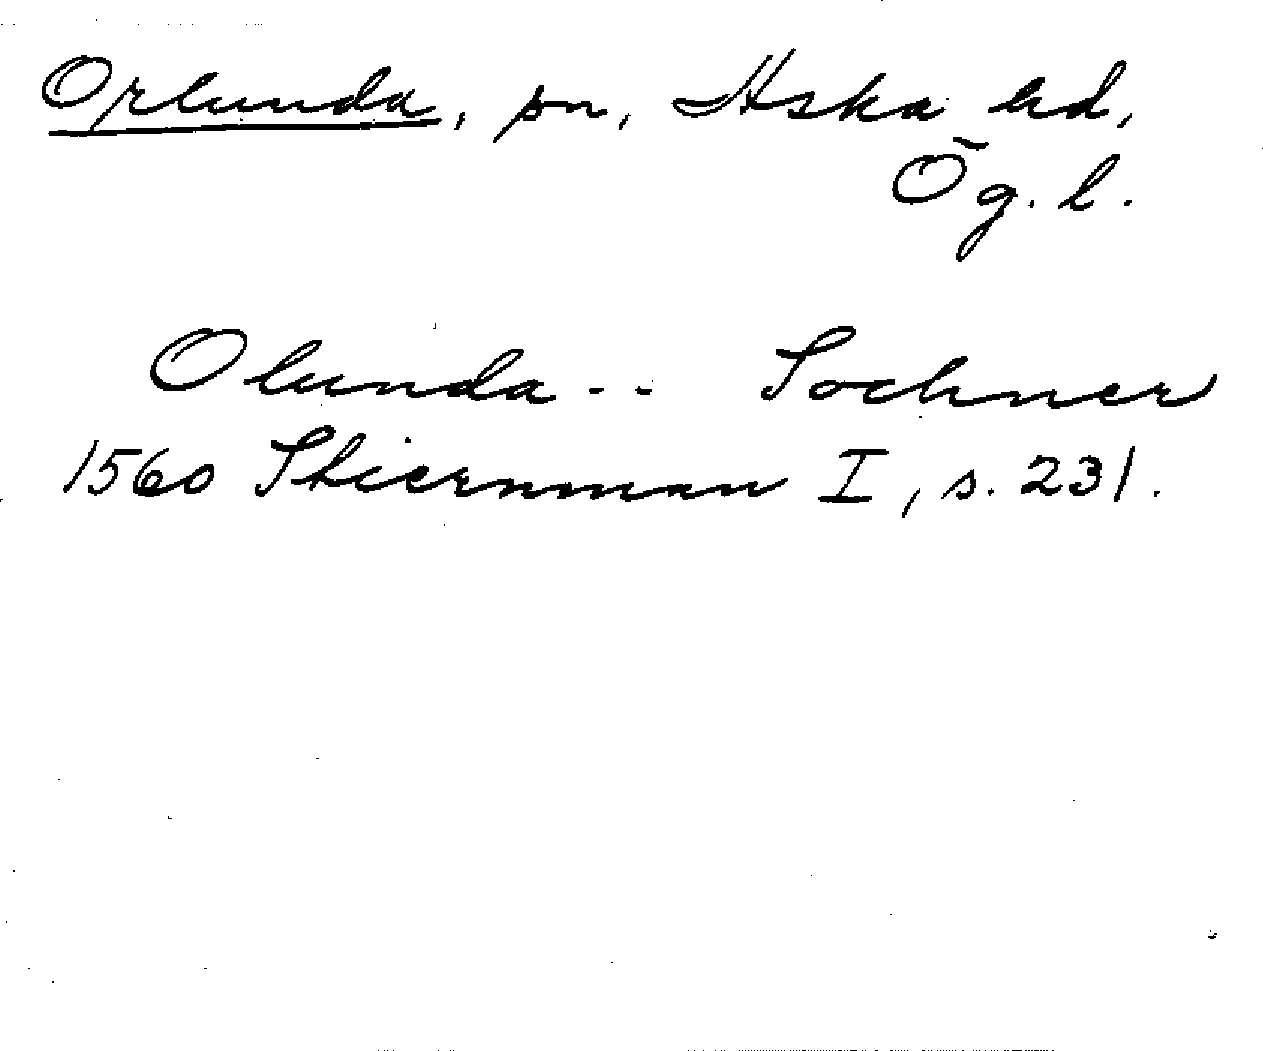 Orlunda, sn, Aska hd,
Ög. l.
Olunda -- Sochner
1560 Stiernman I, s. 231.